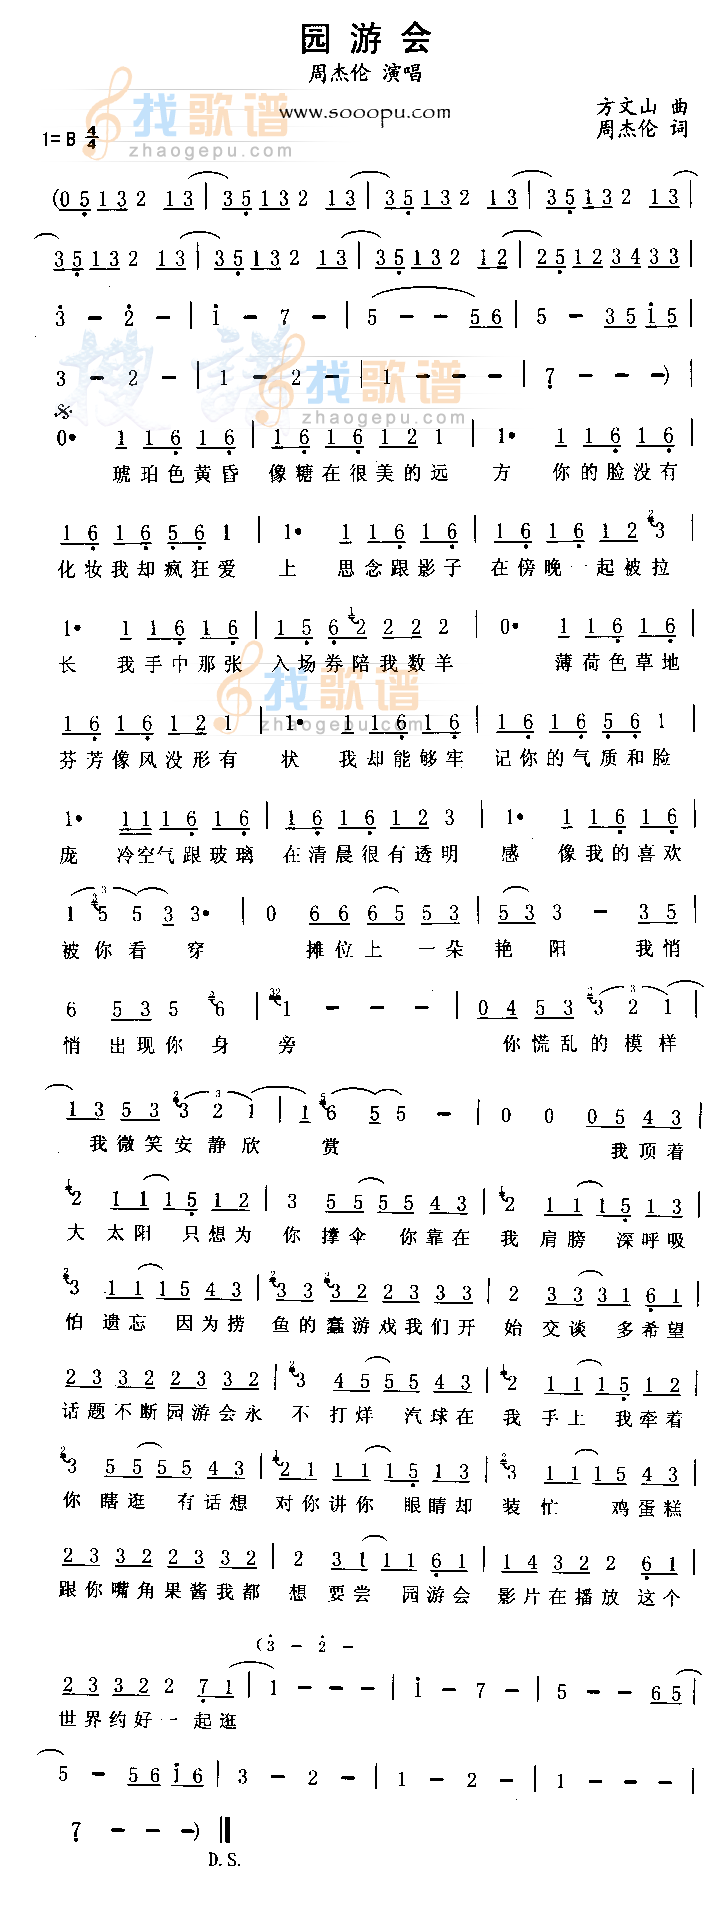 园 游 会
周杰伦 演唱
www.sooopu.com
方文山 曲
1=B 4/4
周杰伦 词
找歌谱
zhaogepu.com
(0 5 1 3 2 1 3 | 3 5 1 3 2 1 3 | 3 5 1 3 2 1 3 | 3 5 1 3 2 1 3 |
3 5 1 3 2 1 3 | 3 5 1 3 2 1 3 | 3 5 1 3 2 1 2 | 2 5 1 2 3 4 3 3 |
3 - 2 - | 1 - 7 - | 5 - - 5 6 | 5 - 3 5 1 5 |
3 - 2 - | 1 - 2 - | 1 - - - | 7 - - -) |
找歌谱
zhaogepu.com
0• 1 1 6 1 6 | 1 6 1 6 1 2 1 | 1• 1 1 6 1 6 |
琥珀色黄昏 像糖在很美的远 方 你的脸没有
1 6 1 6 5 6 1 | 1• 1 1 6 1 6 | 1 6 1 6 1 2 3 |
化妆我却疯狂爱 上 思念跟影子 在傍晚一起被拉
1• 1 1 6 1 6 | 1 5 6 2 2 2 2 | 0• 1 1 6 1 6 |
长 我手中那张 入场券陪我数羊 薄荷色草地
找歌谱
zhaogepu.com
1 6 1 6 1 2 1 | 1• 1 1 6 1 6 | 1 6 1 6 5 6 1 |
芬芳像风没形有 状 我却能够牢 记你的气质和脸
1• 1 1 1 6 1 6 | 1 6 1 6 1 2 3 | 1• 1 1 6 1 6 |
庞 冷空气跟玻璃 在清晨很有透明 感 像我的喜欢
1 5 5 3 3• | 0 6 6 6 5 5 3 | 5 3 3 - 3 5 |
被你看 穿 摊位上 一朵 艳 阳 我悄
6 5 3 5 6 | 1 - - - | 0 4 5 3 3 2 1 |
悄 出现你 身 旁 你慌乱的模样
1 3 5 3 3 2 1 | 1 6 5 5 - | 0 0 0 5 4 3 |
我微笑安静欣 赏 我顶着
2 1 1 1 5 1 2 | 3 5 5 5 5 4 3 | 2 1 1 1 5 1 3 |
大 太阳 只想为 你 撑伞 你靠在 我 肩膀 深呼吸
3 1 1 1 5 4 3 | 3 3 3 2 2 3 3 3 | 2 3 3 3 1 6 1 |
怕 遗忘 因为捞 鱼的蠢游戏我们开 始 交谈 多希望
2 3 3 2 2 3 3 2 | 3 4 5 5 5 4 3 | 2 1 1 1 5 1 2 |
话题不断园游会永 不 打烊 汽球在 我 手上 我牵着
3 5 5 5 5 4 3 | 2 1 1 1 1 5 1 3 | 3 1 1 1 5 4 3 |
你 瞎逛 有话想 对你讲你 眼睛却 装 忙 鸡蛋糕
2 3 3 2 2 3 3 2 | 2 3 1 1 1 6 1 | 1 4 3 2 2 6 1 |
跟你嘴角果酱我都 想 要尝 园游会 影片在播放 这个
(3 - 2 -
2 3 3 2 2 7 1 | 1 - - - | 1 - 7 - | 5 - - 6 5 |
世界约好一起逛
5 - 5 6 1 6 | 3 - 2 - | 1 - 2 - | 1 - - - |
7 - - -) ‖
D.S.